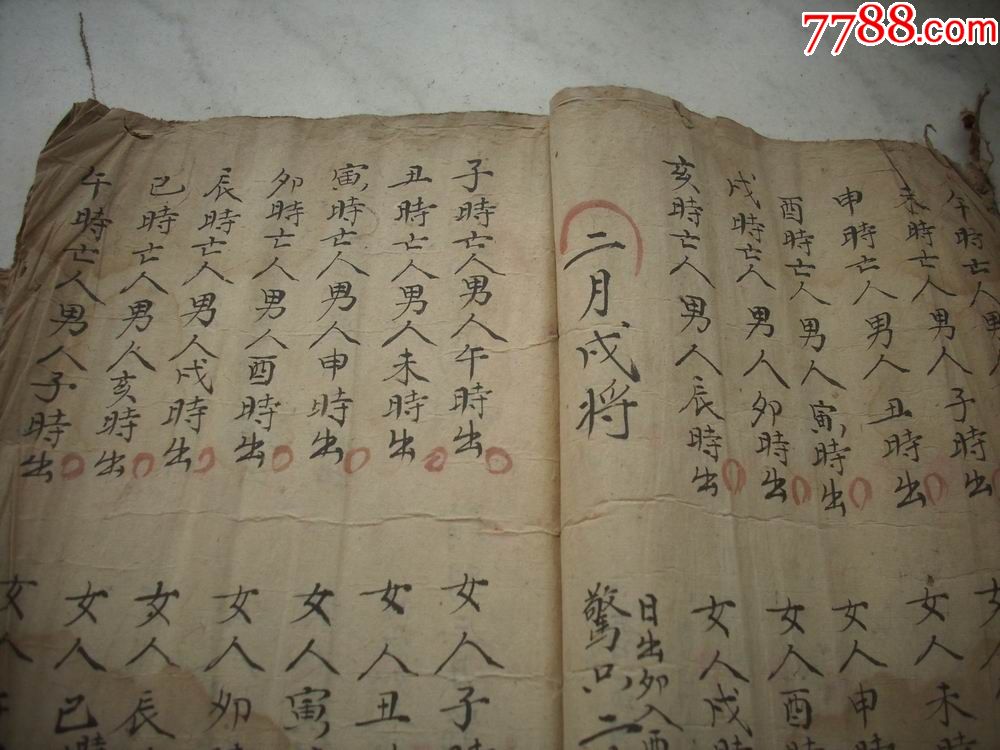 7788.com
午時亡人男
未時亡人男人子時出
申時亡人男人丑時出
酉時亡人男人寅時出
戌時亡人男人卯時出
亥時亡人男人辰時出
二月戌將
子時亡人男人午時出
丑時亡人男人未時出
寅時亡人男人申時出
卯時亡人男人酉時出
辰時亡人男人戌時出
巳時亡人男人亥時出
午時亡人男人子時出
女人未
女人申
女人酉
女人戌
日出卯入酉
驚只二
女人子時
女人丑時
女人寅時
女人卯
女人辰
女人巳時
女人午